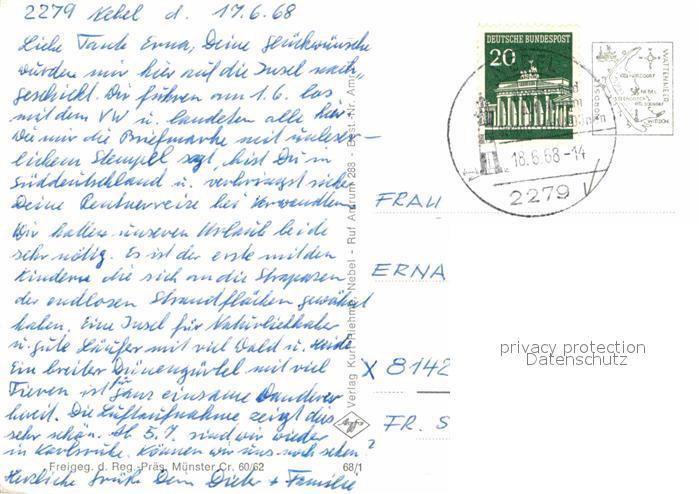 2279 Nebel d. 17.6.68
Liebe Tante Erna, Deine Glückwünsche
wurden mir hier auf die Insel nach-
geschickt. Wir fuhren am 1.6. los
mit dem VW u. landeten alle hier.
Wie mir die Briefmarke mit unleser-
lichem Stempel sagt, bist Du in
Süddeutschland u. verbringst sicher
Deine Rentnerreise bei Verwandten.
Wir hatten unseren Urlaub beide
sehr nötig. Es ist der erste mit den
Kindern die sich an die Strapazen
der endlosen Strandflächen gewöhnt
haben. Eine Insel für Naturliebhaber
u. gute Läufer mit viel Wald u. Heide
Ein breiter Dünengürtel mit viel
Tieren ist für ganz einsame Wanderer
bereit. Die Luftaufnahme zeigt dies
sehr schön. Ab 5.7. sind wir wieder
in Karlsruhe. Können wir uns noch sehen?
Herzliche Grüße Dein Dieter + Familie
Freigeg. d. Reg.-Präs. Münster Cr. 60/62
68/1
Verlag Kurt Riehmer, Nebel - Ruf Amrum 288 - Best.-Nr. Am
DEUTSCHE BUNDESPOST
20
18.6.68-14
2279
WATTENMEER
NEBEL
WITTDÜN
FRAU
ERNA
X 8142
FR. S
privacy protection
Datenschutz